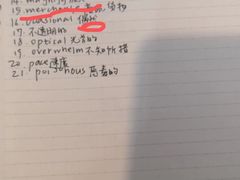 15. merchandise 货物
16. ocasional 偶尔
17. 不透明的
18. optical 光旨的
19. overwhelm 不知所措
20. pace 速度
21. poisonous 有毒的